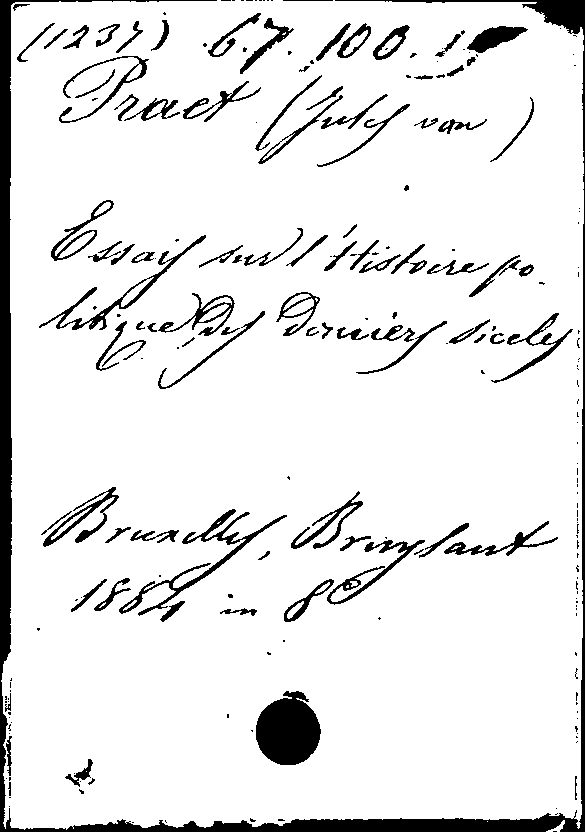 (1237) 6.7. 100.1
Praet (Jules van)
Essais sur l'Histoire po-
litique des derniers siecles
Bruxelles, Bruylant
1884 in 8º